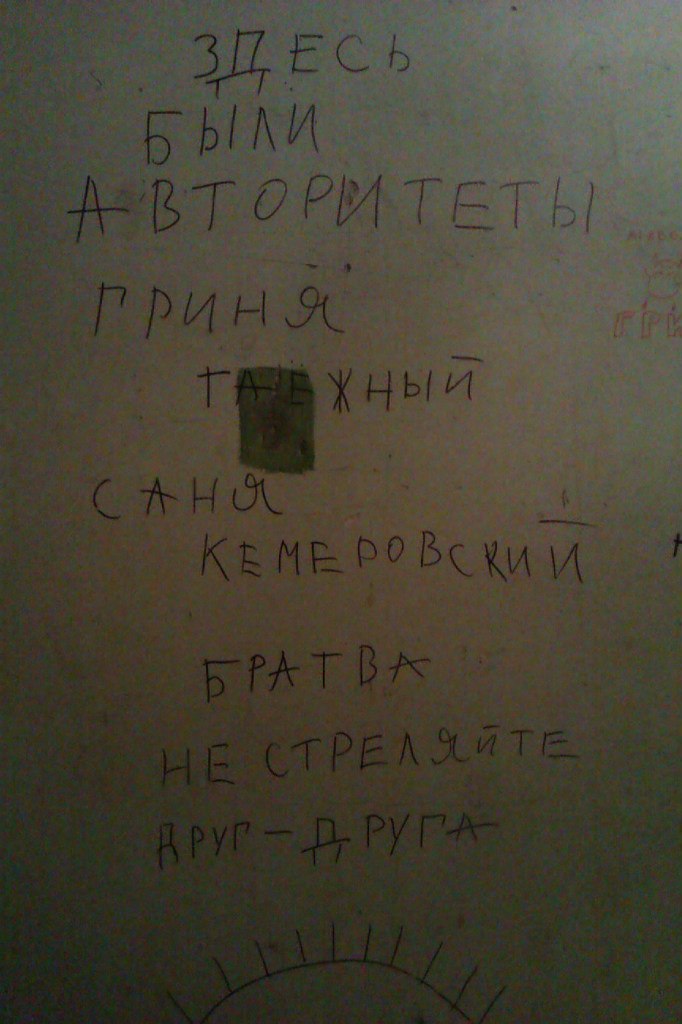 ЗДЕСЬ
БЫЛИ
АВТОРИТЕТЫ
ГРИНЯ
ТАЁЖНЫЙ
САНЯ
КЕМЕРОВСКИЙ
БРАТВА
НЕ СТРЕЛЯЙТЕ
ДРУГ-ДРУГА